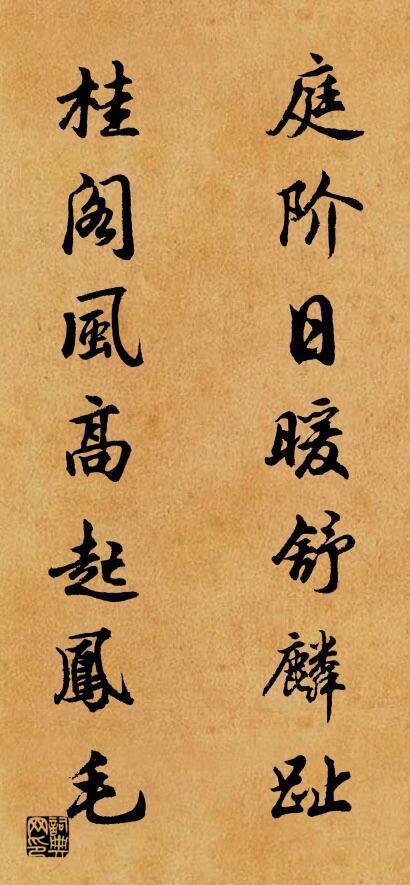 庭阶日暖舒麟趾
桂阁風高起鳳毛
詞典网印